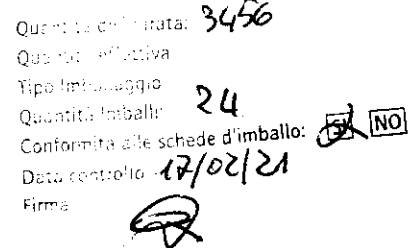 Quantità dichiarata: 3456
Quantità effettiva
Tipo Imballaggio
Quantità Imballi: 24
Conformità alle schede d'imballo: SI NO
Data controllo 17/02/21
Firma